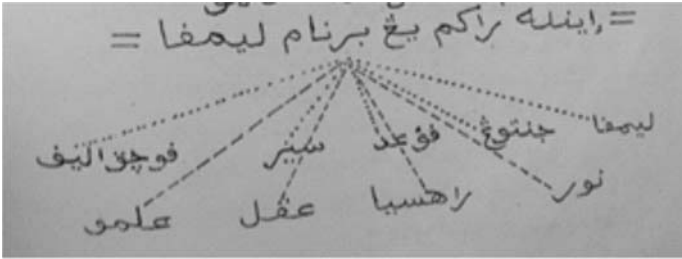 = إينله راكم يڠ برنام ليمفا =
ليمفا جنتوڠ فؤعد سير فوچق اليف
نور راهسيا عقل علمو